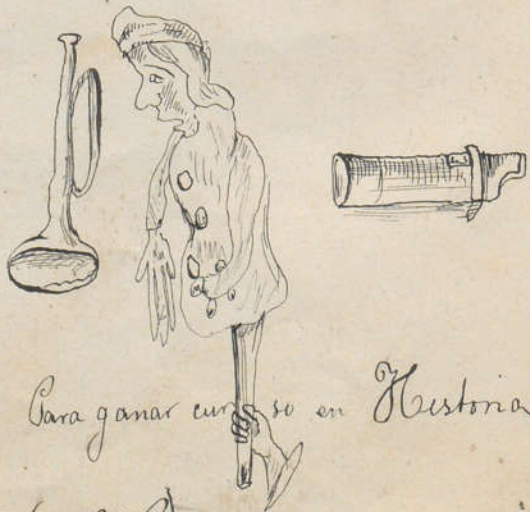 Para ganar curso en Historia